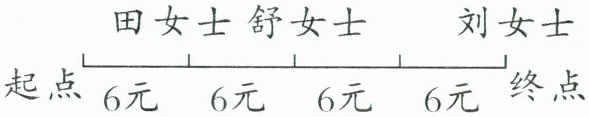 田女士 舒女士 刘女士
起点 6元 6元 6元 6元 终点